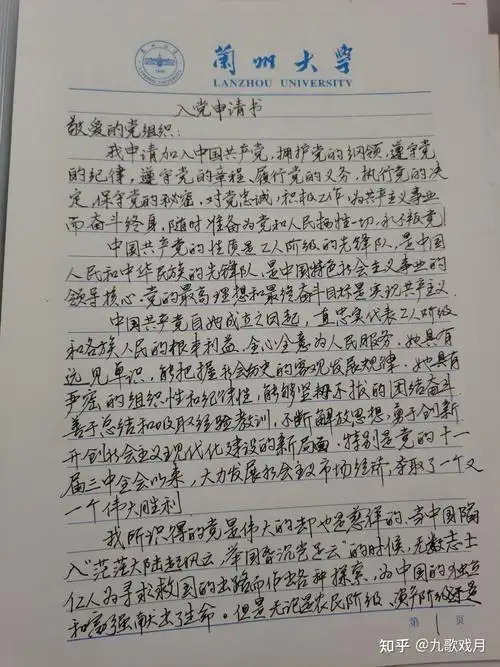 兰州大学
LANZHOU UNIVERSITY
入党申请书
敬爱的党组织:
我申请加入中国共产党,拥护党的纲领,遵守党
的纪律,遵守党的章程,履行党的义务,执行党的决
定,保守党的秘密,对党忠诚,积极工作,为共产主义事业
而奋斗终身,随时准备为党和人民牺牲一切,永不叛党!
中国共产党的性质是工人阶级的先锋队,是中国
人民和中华民族的先锋队,是中国特色社会主义事业的
领导核心.党的最高理想和最终奋斗目标是实现共产主义.
中国共产党自她成立之日起,直忠实代表工人阶级
和各族人民的根本利益.全心全意为人民服务.她具有
远见卓识,能把握社会历史的客观发展规律.她具有
严密的组织性和纪律性,能够坚持不拔的团结奋斗
善于总结和吸取经验教训,不断解放思想,勇于创新
开创社会主义现代化建设的新局面.特别是党的十一
届三中全会以来,大力发展社会主义市场经济,夺取了一个又
一个伟大胜利
我所识得的党是伟大的却也是悲怆的.当中国陷
入"茫茫大陆起风云,举国昏沉岂足云"的时候,无数志士
仁人为寻求救国的出路而作出各种探索,为中国的独立
和富强献出了生命。但是无论是农民阶级、资产阶级还是
第 1 页
知乎 @九歌戏月